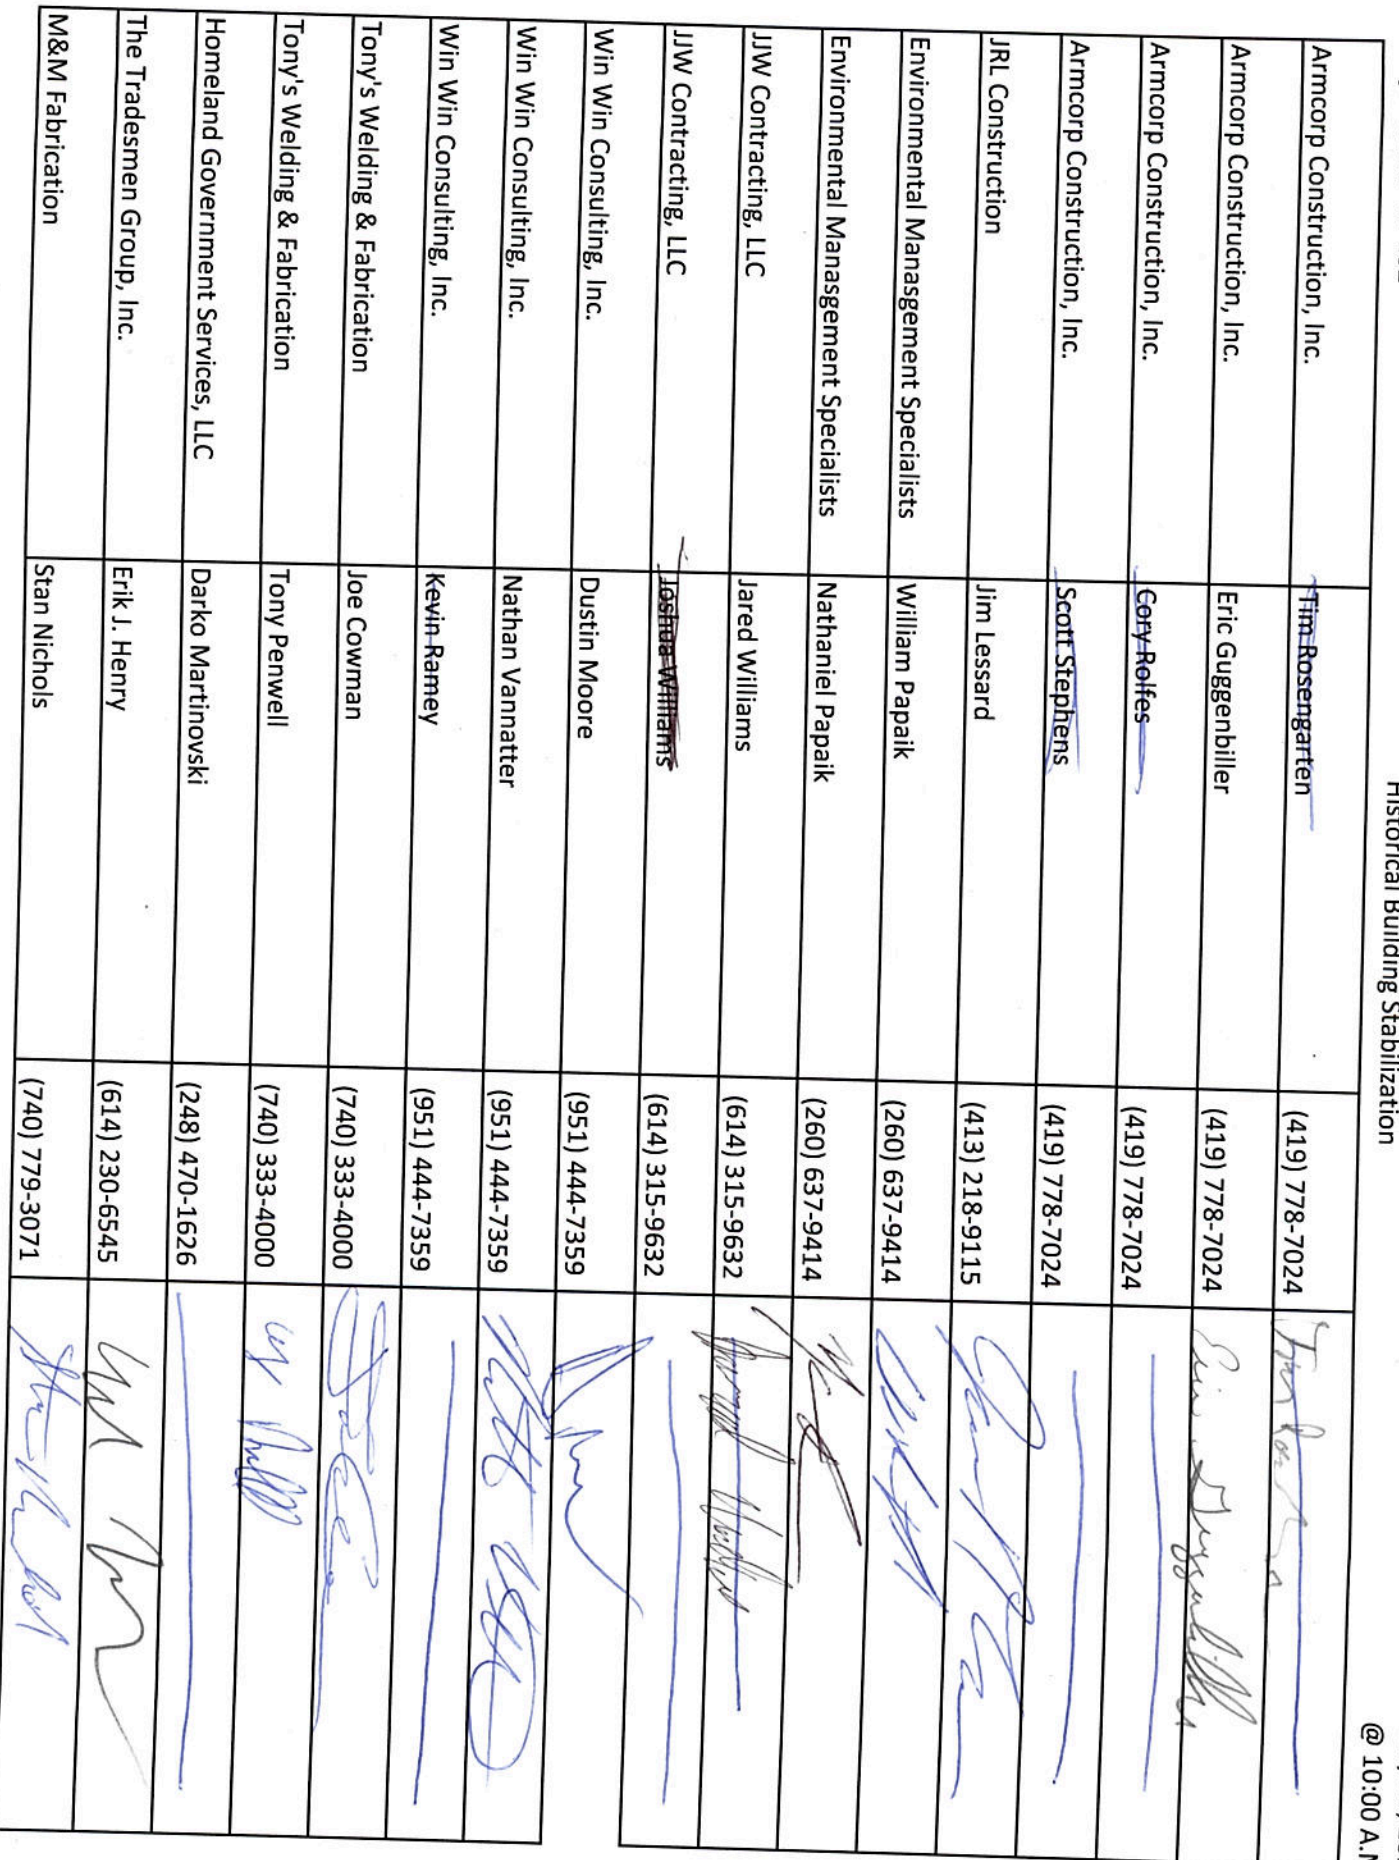 Historical Building Stabilization
@ 10:00 A.M
Armcorp Construction, Inc. Tim Rosengarten (419) 778-7024
Armcorp Construction, Inc. Eric Guggenbiller (419) 778-7024 Eric Guggenbiller
Armcorp Construction, Inc. Cory Rolfes (419) 778-7024
Armcorp Construction, Inc. Scott Stephens (419) 778-7024
JRL Construction Jim Lessard (413) 218-9115
Environmental Manasgement Specialists William Papaik (260) 637-9414
Environmental Manasgement Specialists Nathaniel Papaik (260) 637-9414
JJW Contracting, LLC Jared Williams (614) 315-9632 Jared Williams
JJW Contracting, LLC Joshua Williams (614) 315-9632
Win Win Consulting, Inc. Dustin Moore (951) 444-7359
Win Win Consulting, Inc. Nathan Vannatter (951) 444-7359
Win Win Consulting, Inc. Kevin Ramey (951) 444-7359
Tony's Welding & Fabrication Joe Cowman (740) 333-4000
Tony's Welding & Fabrication Tony Penwell (740) 333-4000
Homeland Government Services, LLC Darko Martinovski (248) 470-1626
The Tradesmen Group, Inc. Erik J. Henry (614) 230-6545
M&M Fabrication Stan Nichols (740) 779-3071